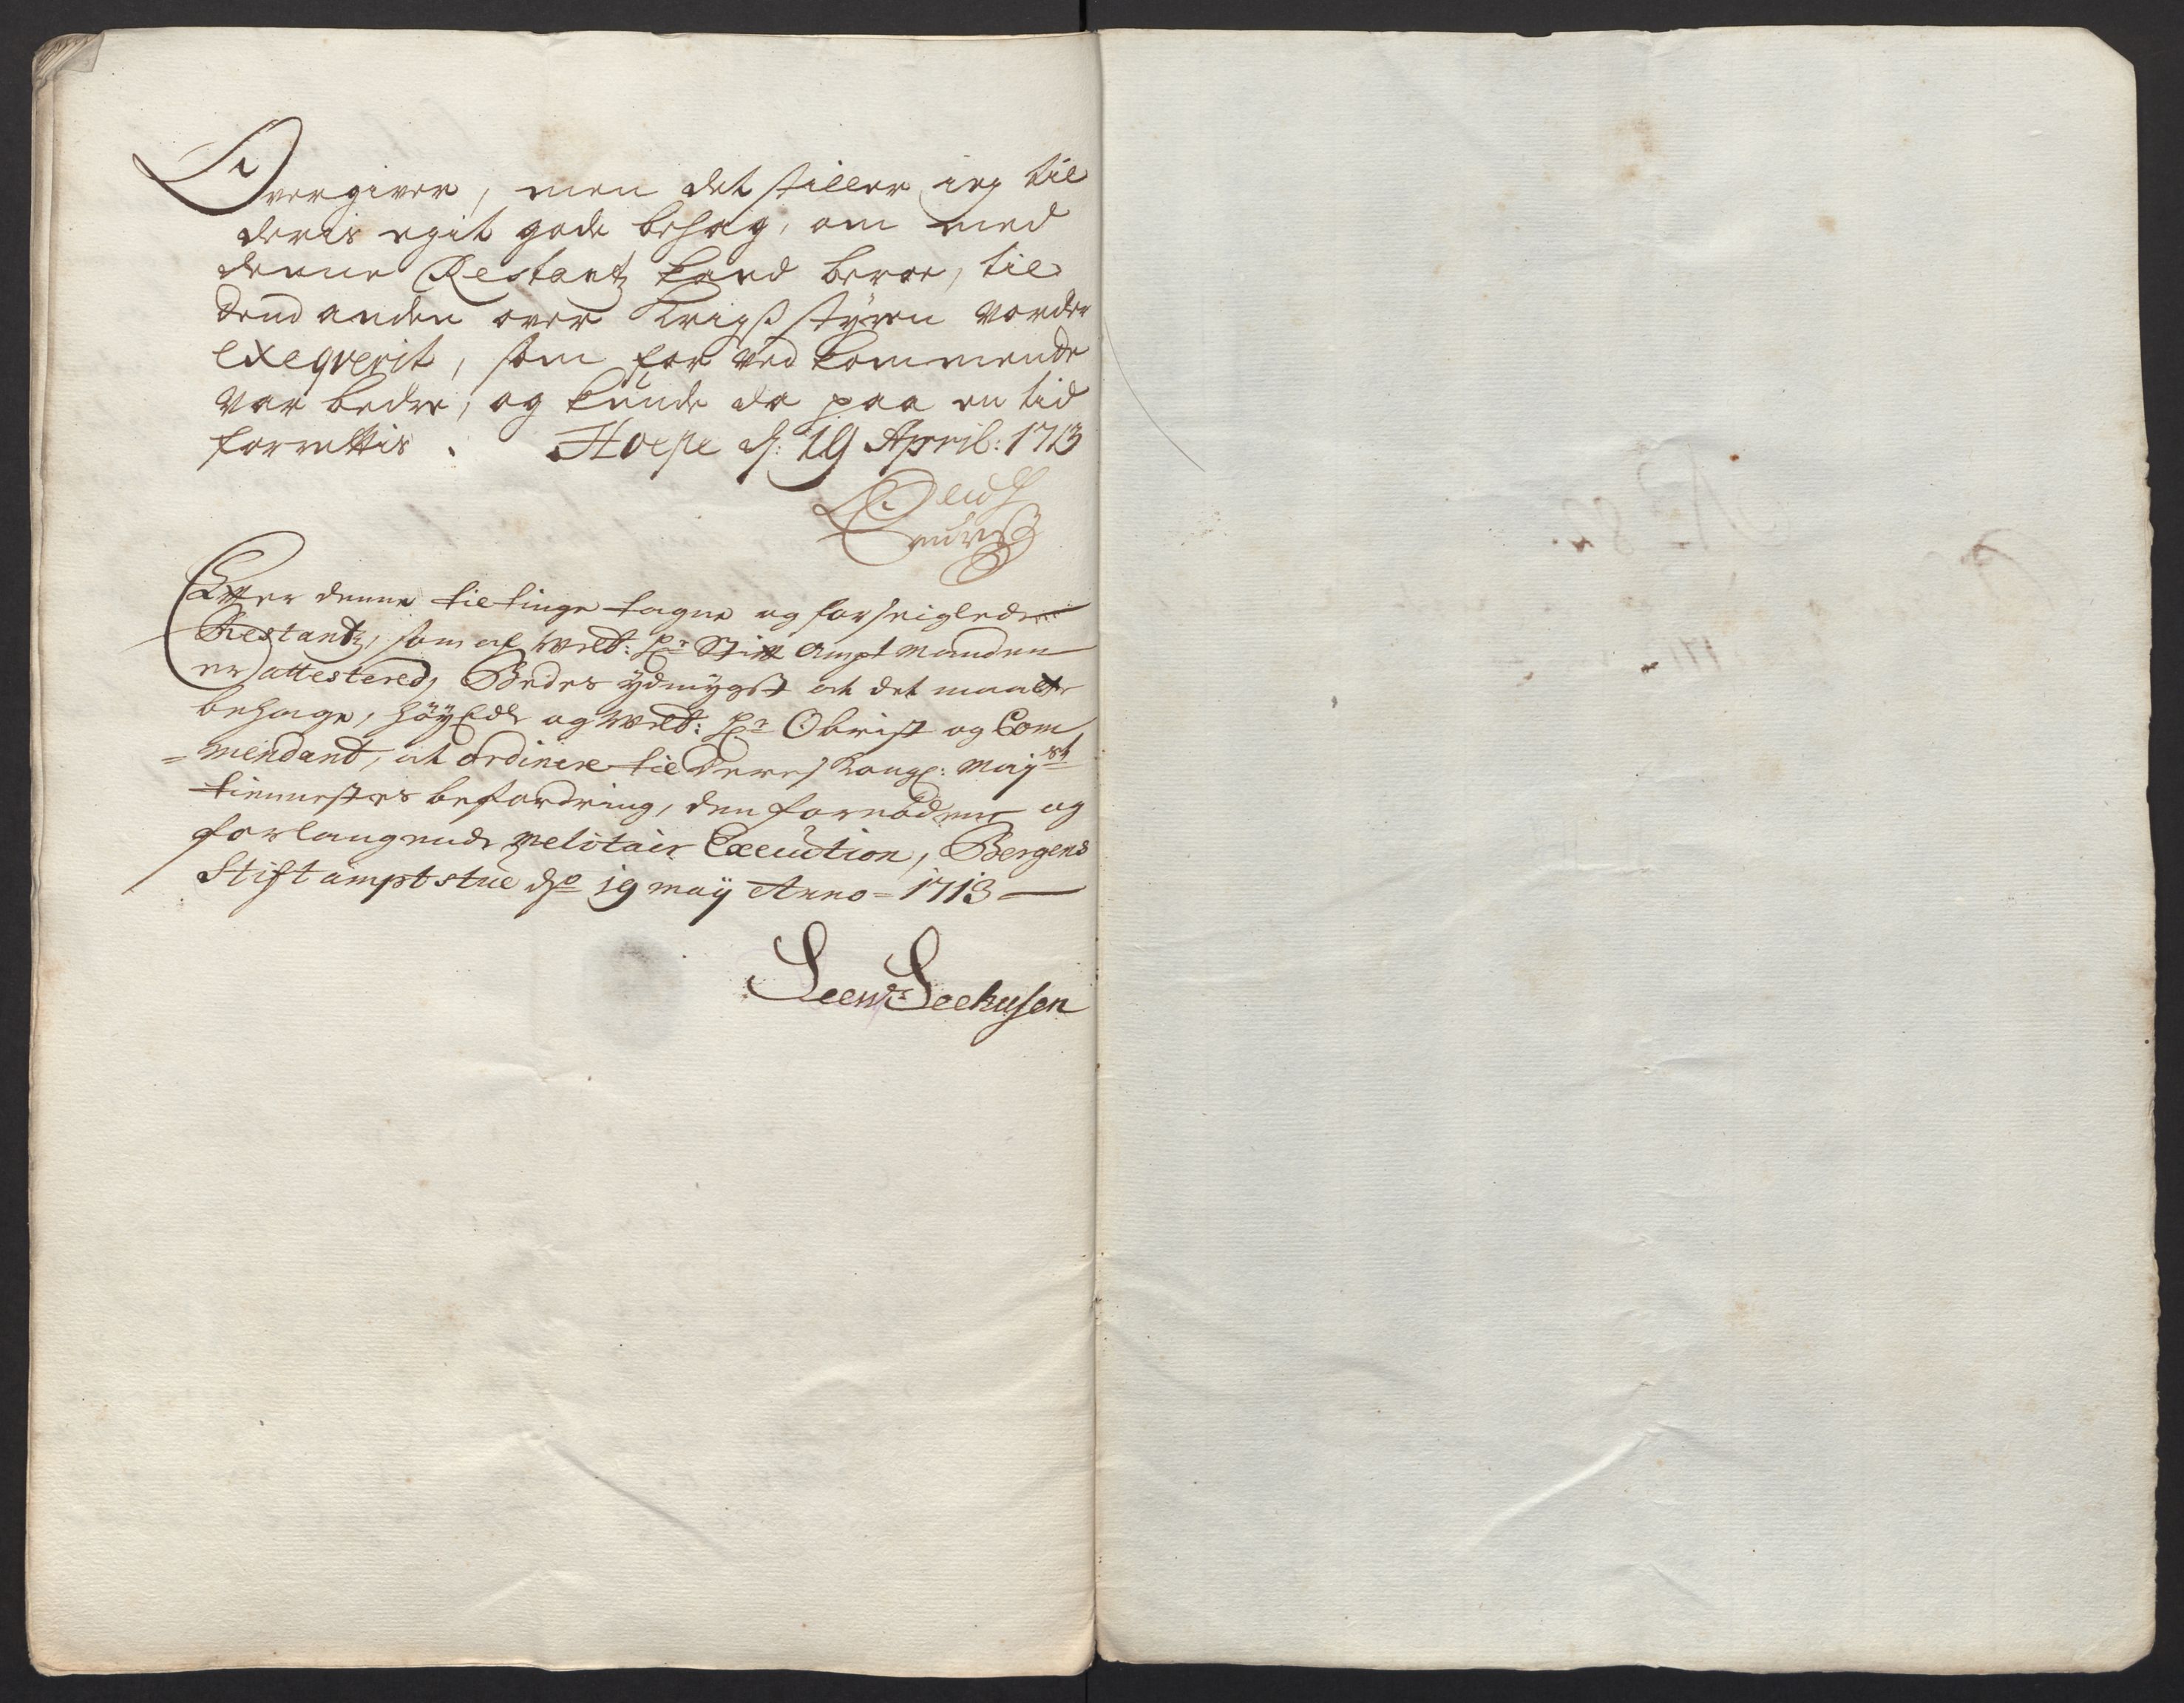 Overgiver, men det stiller ieg til
deris egit gode behag, om med
denne Restantz kand beroe, til
dend anden over Krigs styren vorder
exeqverit, som for ved kommende
var bedre, og kunde da paa en tid
forrettis. Hope d: 19 April: 1713
Efter denne til tinge tagne og forseiglede
Restantz, som af Welb: Hr Stift Amptmanden
er attestered, Bedes ydmygst at det maatte
behage, høyEdle og Welb: Hr Obrist og Com
=mendant, at ordinere til Deres Kongl: Mayst
tiennestes befordring, den fornødne og
forlangende Melitair Execution, Bergens
Stiftamptstue dō 19 maij Anno = 1713
Leew: Seehusen